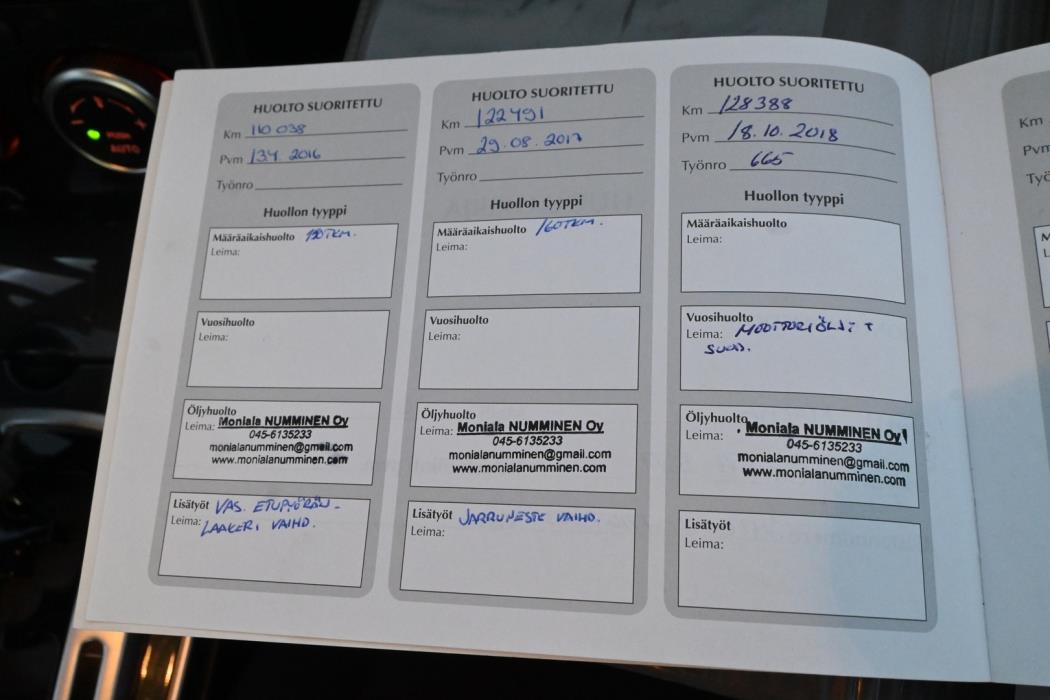 HUOLTO SUORITETTU
Km 110 038
Pvm 13.4. 2016
Työnro
Huollon tyyppi
Määräaikaishuolto
Leima:
Vuosihuolto
Leima:
Öljyhuolto
Leima: Moniala NUMMINEN Oy
045-6135233
monialanumminen@gmail.com
www.monialanumminen.com
Lisätyöt VAS. ETUPYÖRÄN-
Leima: LAAKERI VAIHD.
HUOLTO SUORITETTU
Km 122491
Pvm 29.08.2017
Työnro
Huollon tyyppi
Määräaikaishuolto 160TKM.
Leima:
Vuosihuolto
Leima:
Öljyhuolto
Leima: Moniala NUMMINEN Oy
045-6135233
monialanumminen@gmail.com
www.monialanumminen.com
Lisätyöt JARRUNESTE VAIHD.
Leima:
HUOLTO SUORITETTU
Km 128388
Pvm 18.10.2018
Työnro 665
Huollon tyyppi
Määräaikaishuolto
Leima:
Vuosihuolto
Leima: MOOTTORIÖLJYT
SUOD.
Öljyhuolto
Leima: Moniala NUMMINEN Oy
045-6135233
monialanumminen@gmail.com
www.monialanumminen.com
Lisätyöt
Leima:
Km
Pvm
PUSH
AUTO